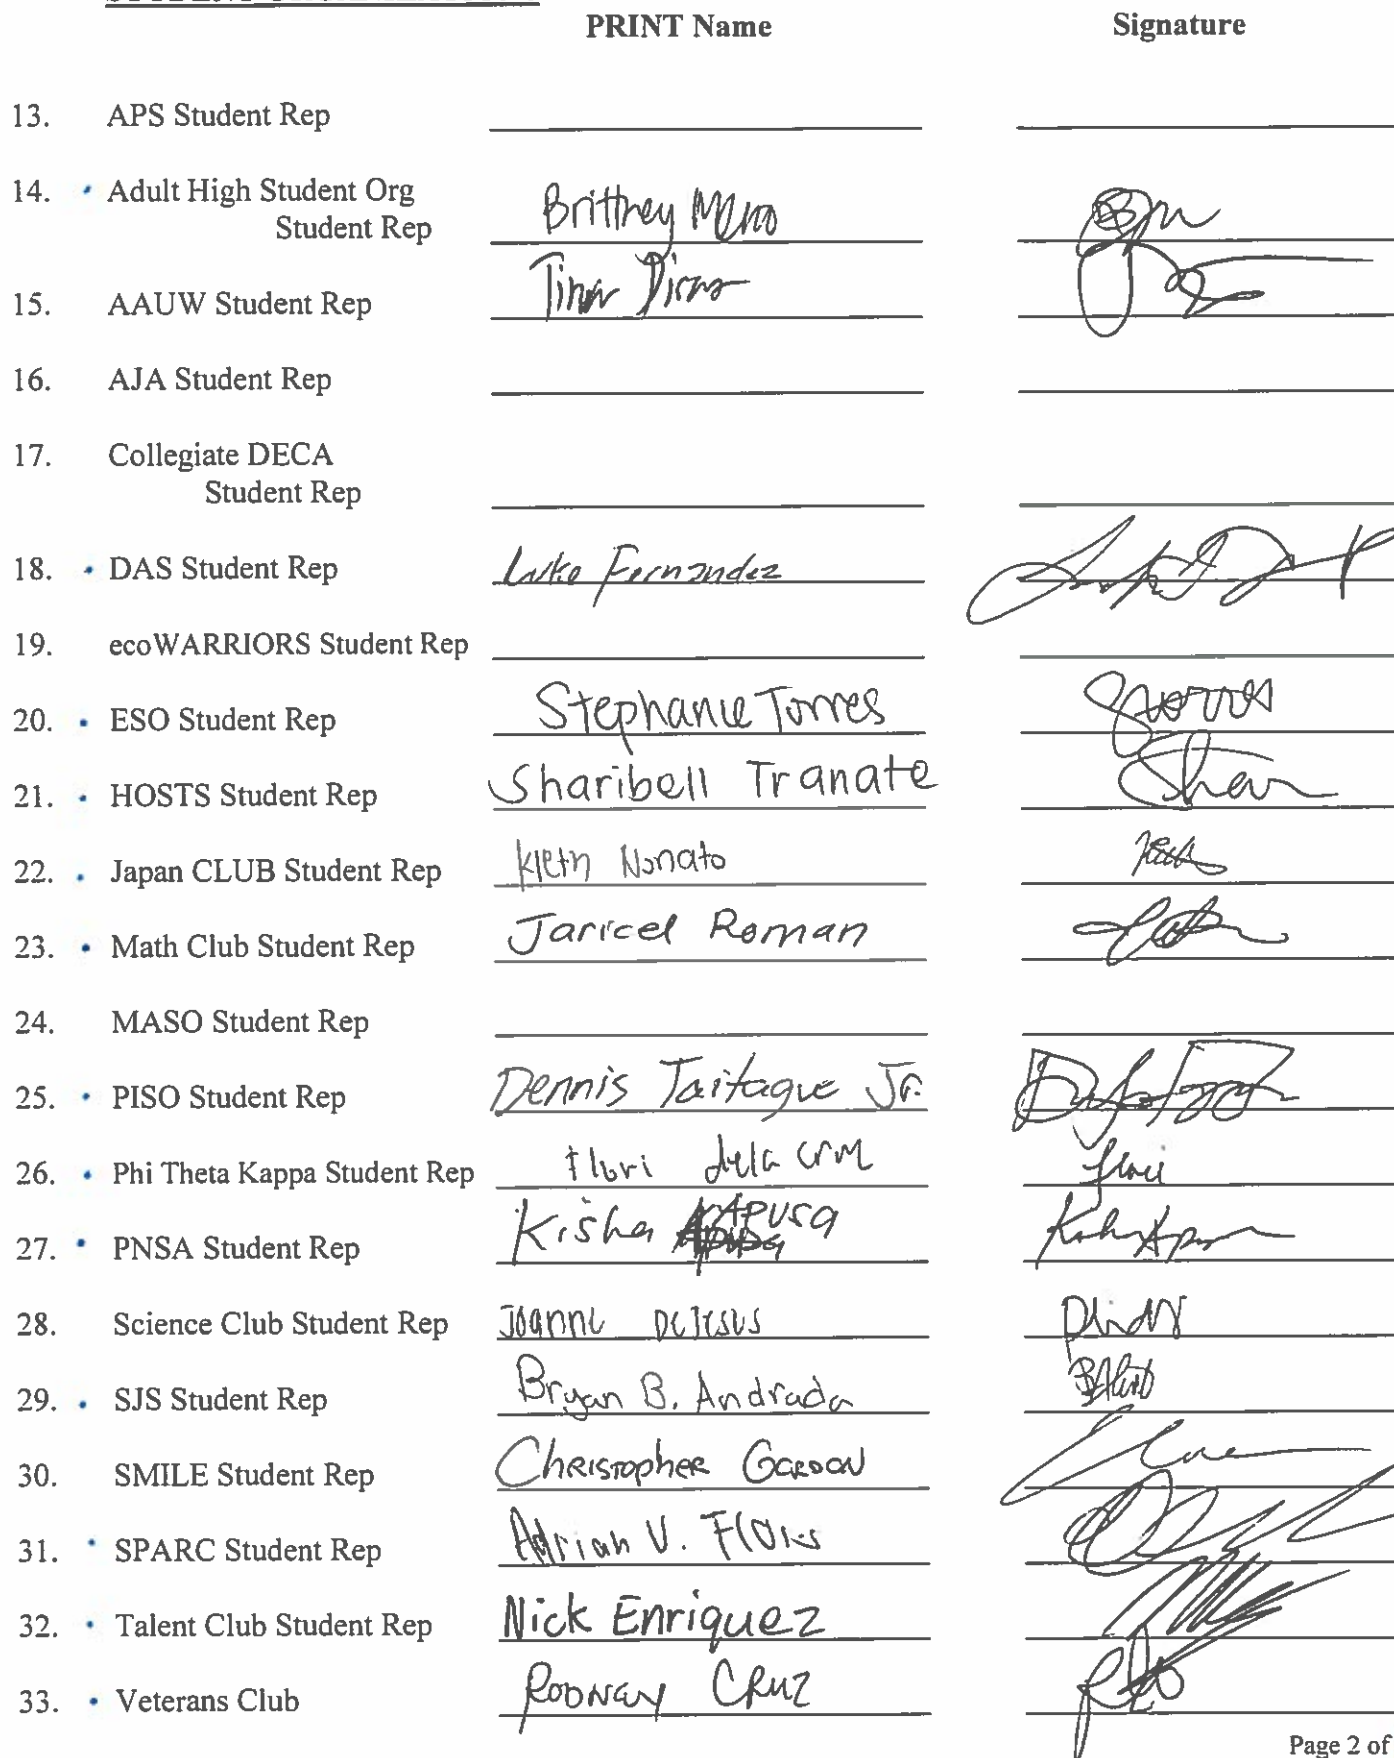 PRINT Name Signature
13. APS Student Rep
14. • Adult High Student Org
Student Rep Brittney Meno
15. AAUW Student Rep Tina
16. AJA Student Rep
17. Collegiate DECA
Student Rep
18. • DAS Student Rep Luke Fernandez
19. ecoWARRIORS Student Rep
20. • ESO Student Rep Stephanie Torres Storres
21. • HOSTS Student Rep Sharibell Tranate Shar
22. • Japan CLUB Student Rep Kieth Nonato
23. • Math Club Student Rep Jaricel Roman
24. MASO Student Rep
25. • PISO Student Rep Dennis Taitague Jr.
26. • Phi Theta Kappa Student Rep Flori dela Cruz Flori
27. • PNSA Student Rep Kisha APUSA
28. Science Club Student Rep Joanne DeJesus
29. • SJS Student Rep Bryan B. Andrada
30. SMILE Student Rep Christopher Garson
31. • SPARC Student Rep Adrian V. Flores
32. • Talent Club Student Rep Nick Enriquez
33. • Veterans Club Rodney Cruz
Page 2 of